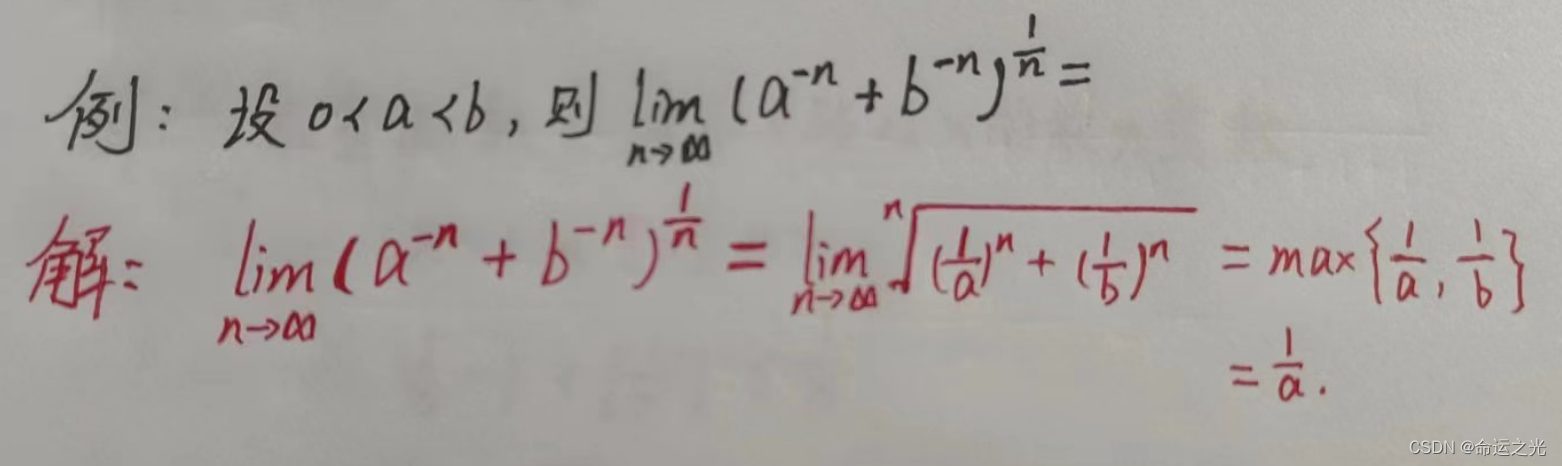 例: 设 0<a<b, 则 lim_{n→∞} (a^{-n} + b^{-n})^{\frac{1}{n}} =
解: lim_{n→∞} (a^{-n} + b^{-n})^{\frac{1}{n}} = lim_{n→∞} \sqrt[n]{(\frac{1}{a})^n + (\frac{1}{b})^n} = max{\frac{1}{a}, \frac{1}{b}}
= \frac{1}{a}.
CSDN @命运之光